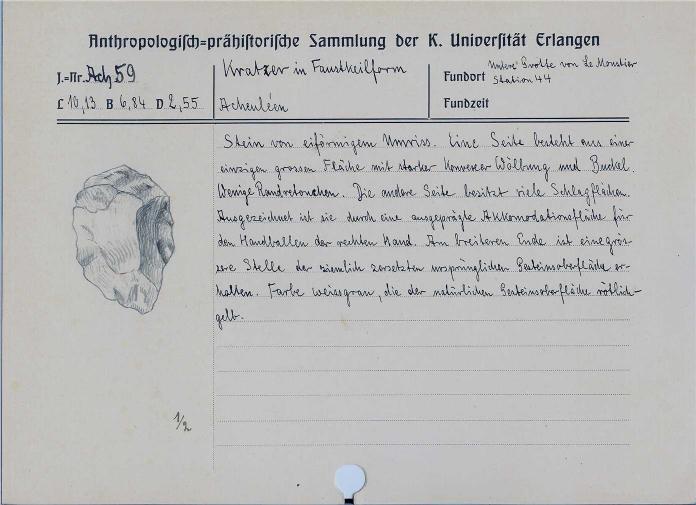 Anthropologisch=prähistorische Sammlung der K. Universität Erlangen
J.=Nr. Ach 59
L 10,13 B 6,84 D 2,55
Kratzer in Faustkeilform
Acheuléen
Fundort Untere Grotte von Le Moustier
Station 44
Fundzeit
Stein von eiförmigem Umriss. Eine Seite besteht aus einer
einzigen grossen Fläche mit starker konvexer Wölbung und Buckel.
Wenige Randretouchen. Die andere Seite besitzt viele Schlagflächen.
Ausgezeichnet ist sie durch eine ausgeprägte Akkomodationsfläche für
den Handballen der rechten Hand. Am breiteren Ende ist eine grös-
sere Stelle der ziemlich zersetzten ursprünglichen Gesteinsoberfläche er-
halten. Farbe weissgrau, die der natürlichen Gesteinsoberfläche rötlich-
gelb.
1/2